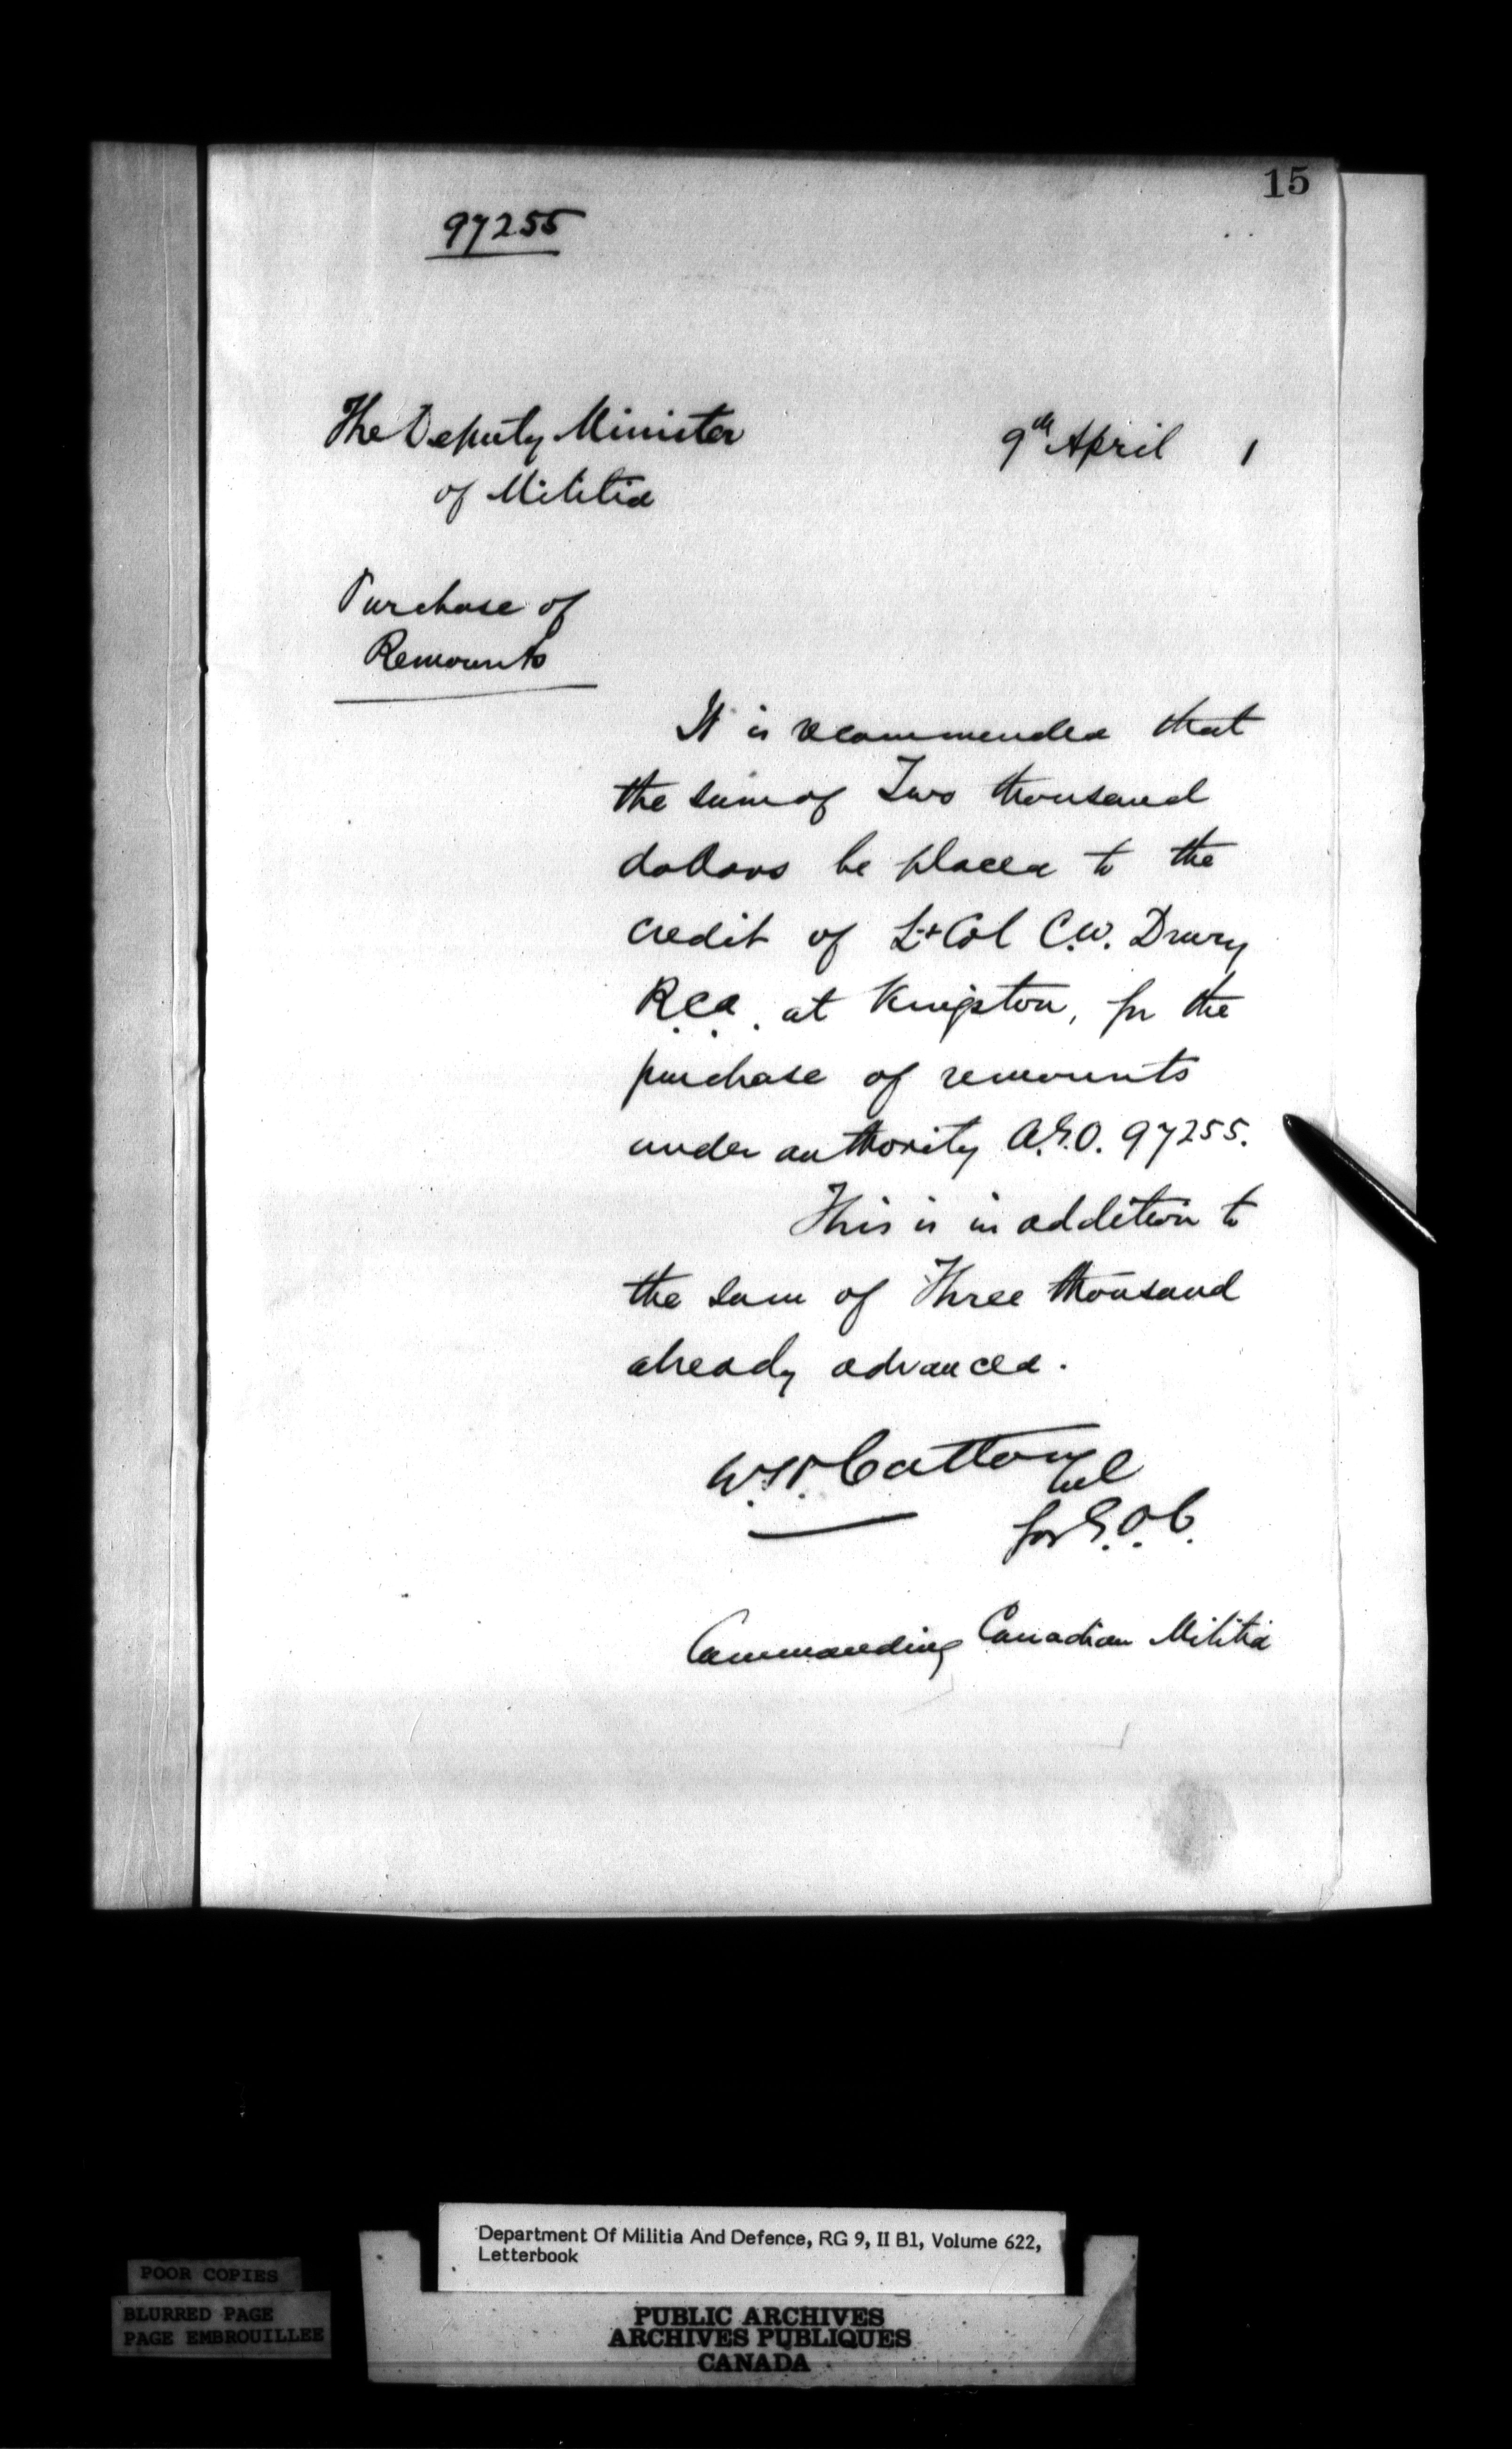 15
97255
The Deputy Minister
of Militia
9th April 1
Purchase of
Remounts
It is recommended that
the sum of Two thousand
dollars be placed to the
credit of Lt Col C.W. Drury
R.C.A. at Kingston, for the
purchase of remounts
under authority A.G.O. 97255.
This is in addition to
the sum of Three thousand
already advanced.
Col
for G.O.C.
Commanding Canadian Militia
Department Of Militia And Defence, RG 9, II B1, Volume 622,
Letterbook
POOR COPIES
BLURRED PAGE
PAGE EMBROUILLEE
PUBLIC ARCHIVES
ARCHIVES PUBLIQUES
CANADA